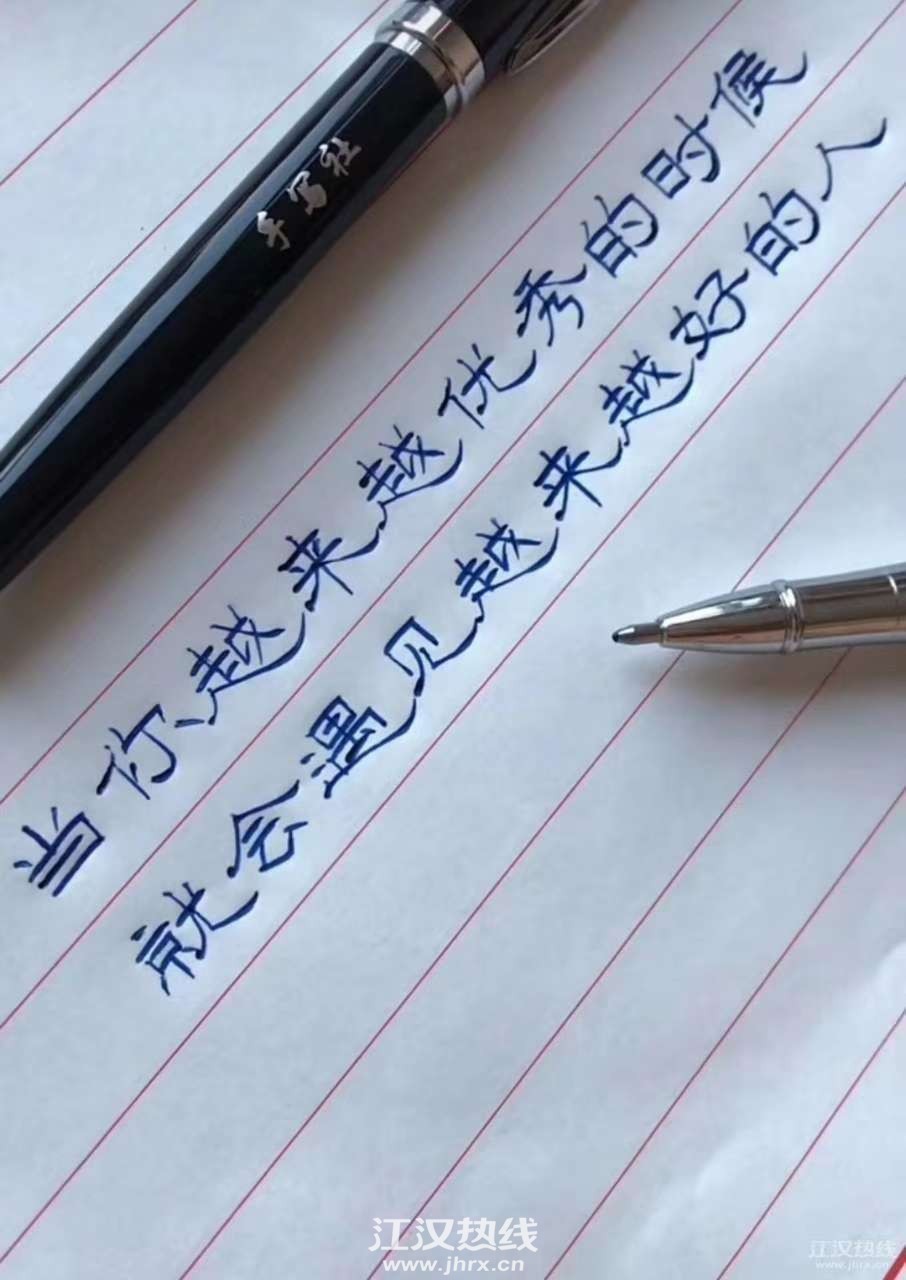 手写社
当你越来越优秀的时侯
就会遇见越来越好的人
江汉热线
www.jhrx.cn
江汉热线
www.jhrx.cn